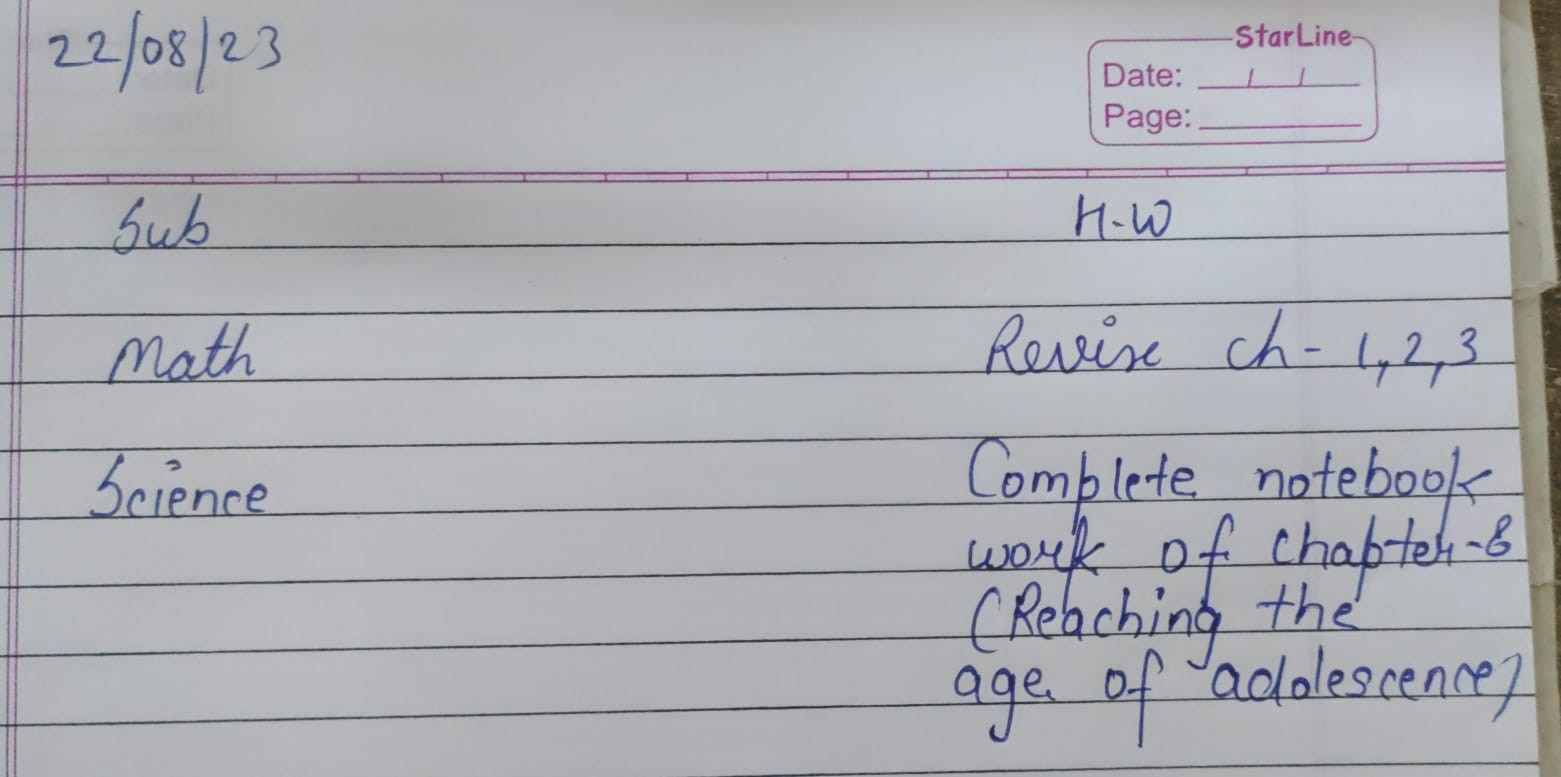 22/08/23
StarLine
Date: / /
Page:
Sub H-W
Math Revise ch- 1,2,3
Science Complete notebook
work of chapter-8
(Reaching the
age of adolescence)